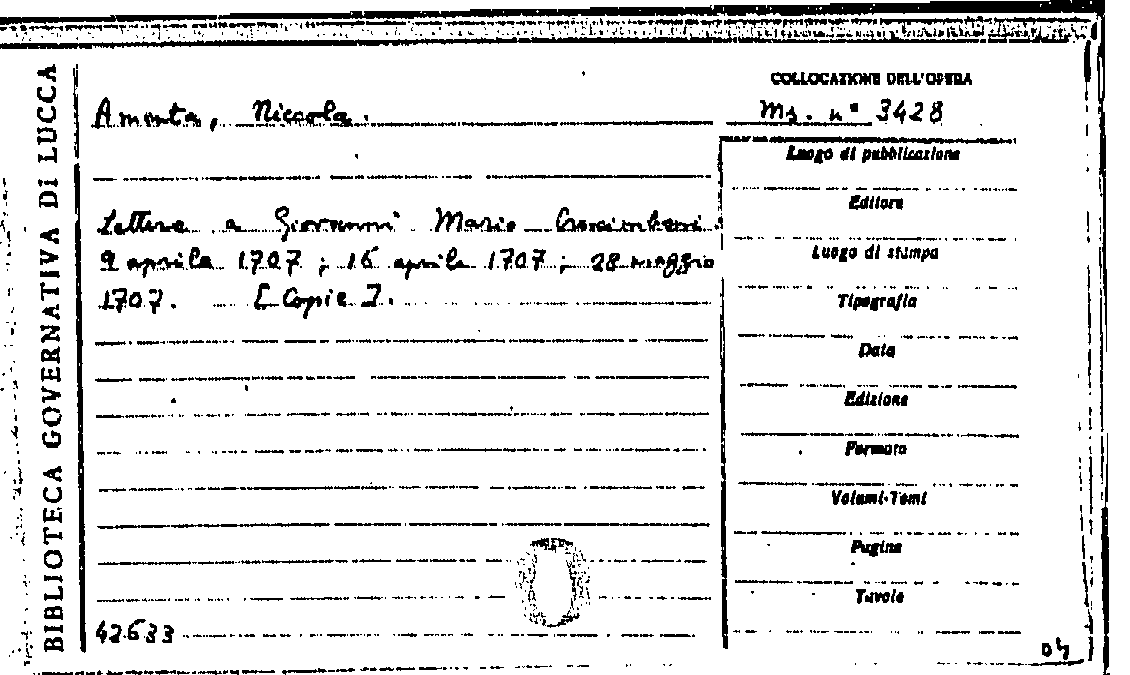 BIBLIOTECA GOVERNATIVA DI LUCCA
COLLOCAZIONE DELL'OPERA
Amenta, Niccola.
Ms. n° 3428
Luogo di pubblicazione
Lettere a Giovanni Mario Crescimbeni.
9 aprile 1707; 16 aprile 1707; 28 maggio
1707. [Copie].
Editore
Luogo di stampa
Tipografia
Data
Edizione
Formato
Volumi-Tomi
Pagine
Tavole
42633